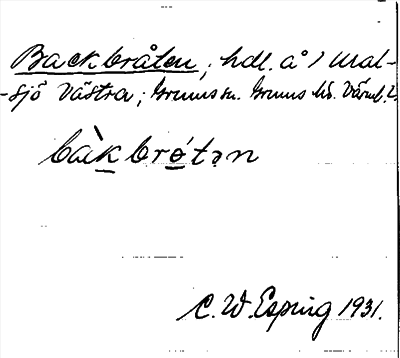 Backbråten, hdl. å 1 Mal-
-sjö Västra; Brunns sn. Brunns hd. Värml. l.
bàkbrótən
C. W. Esping 1931.